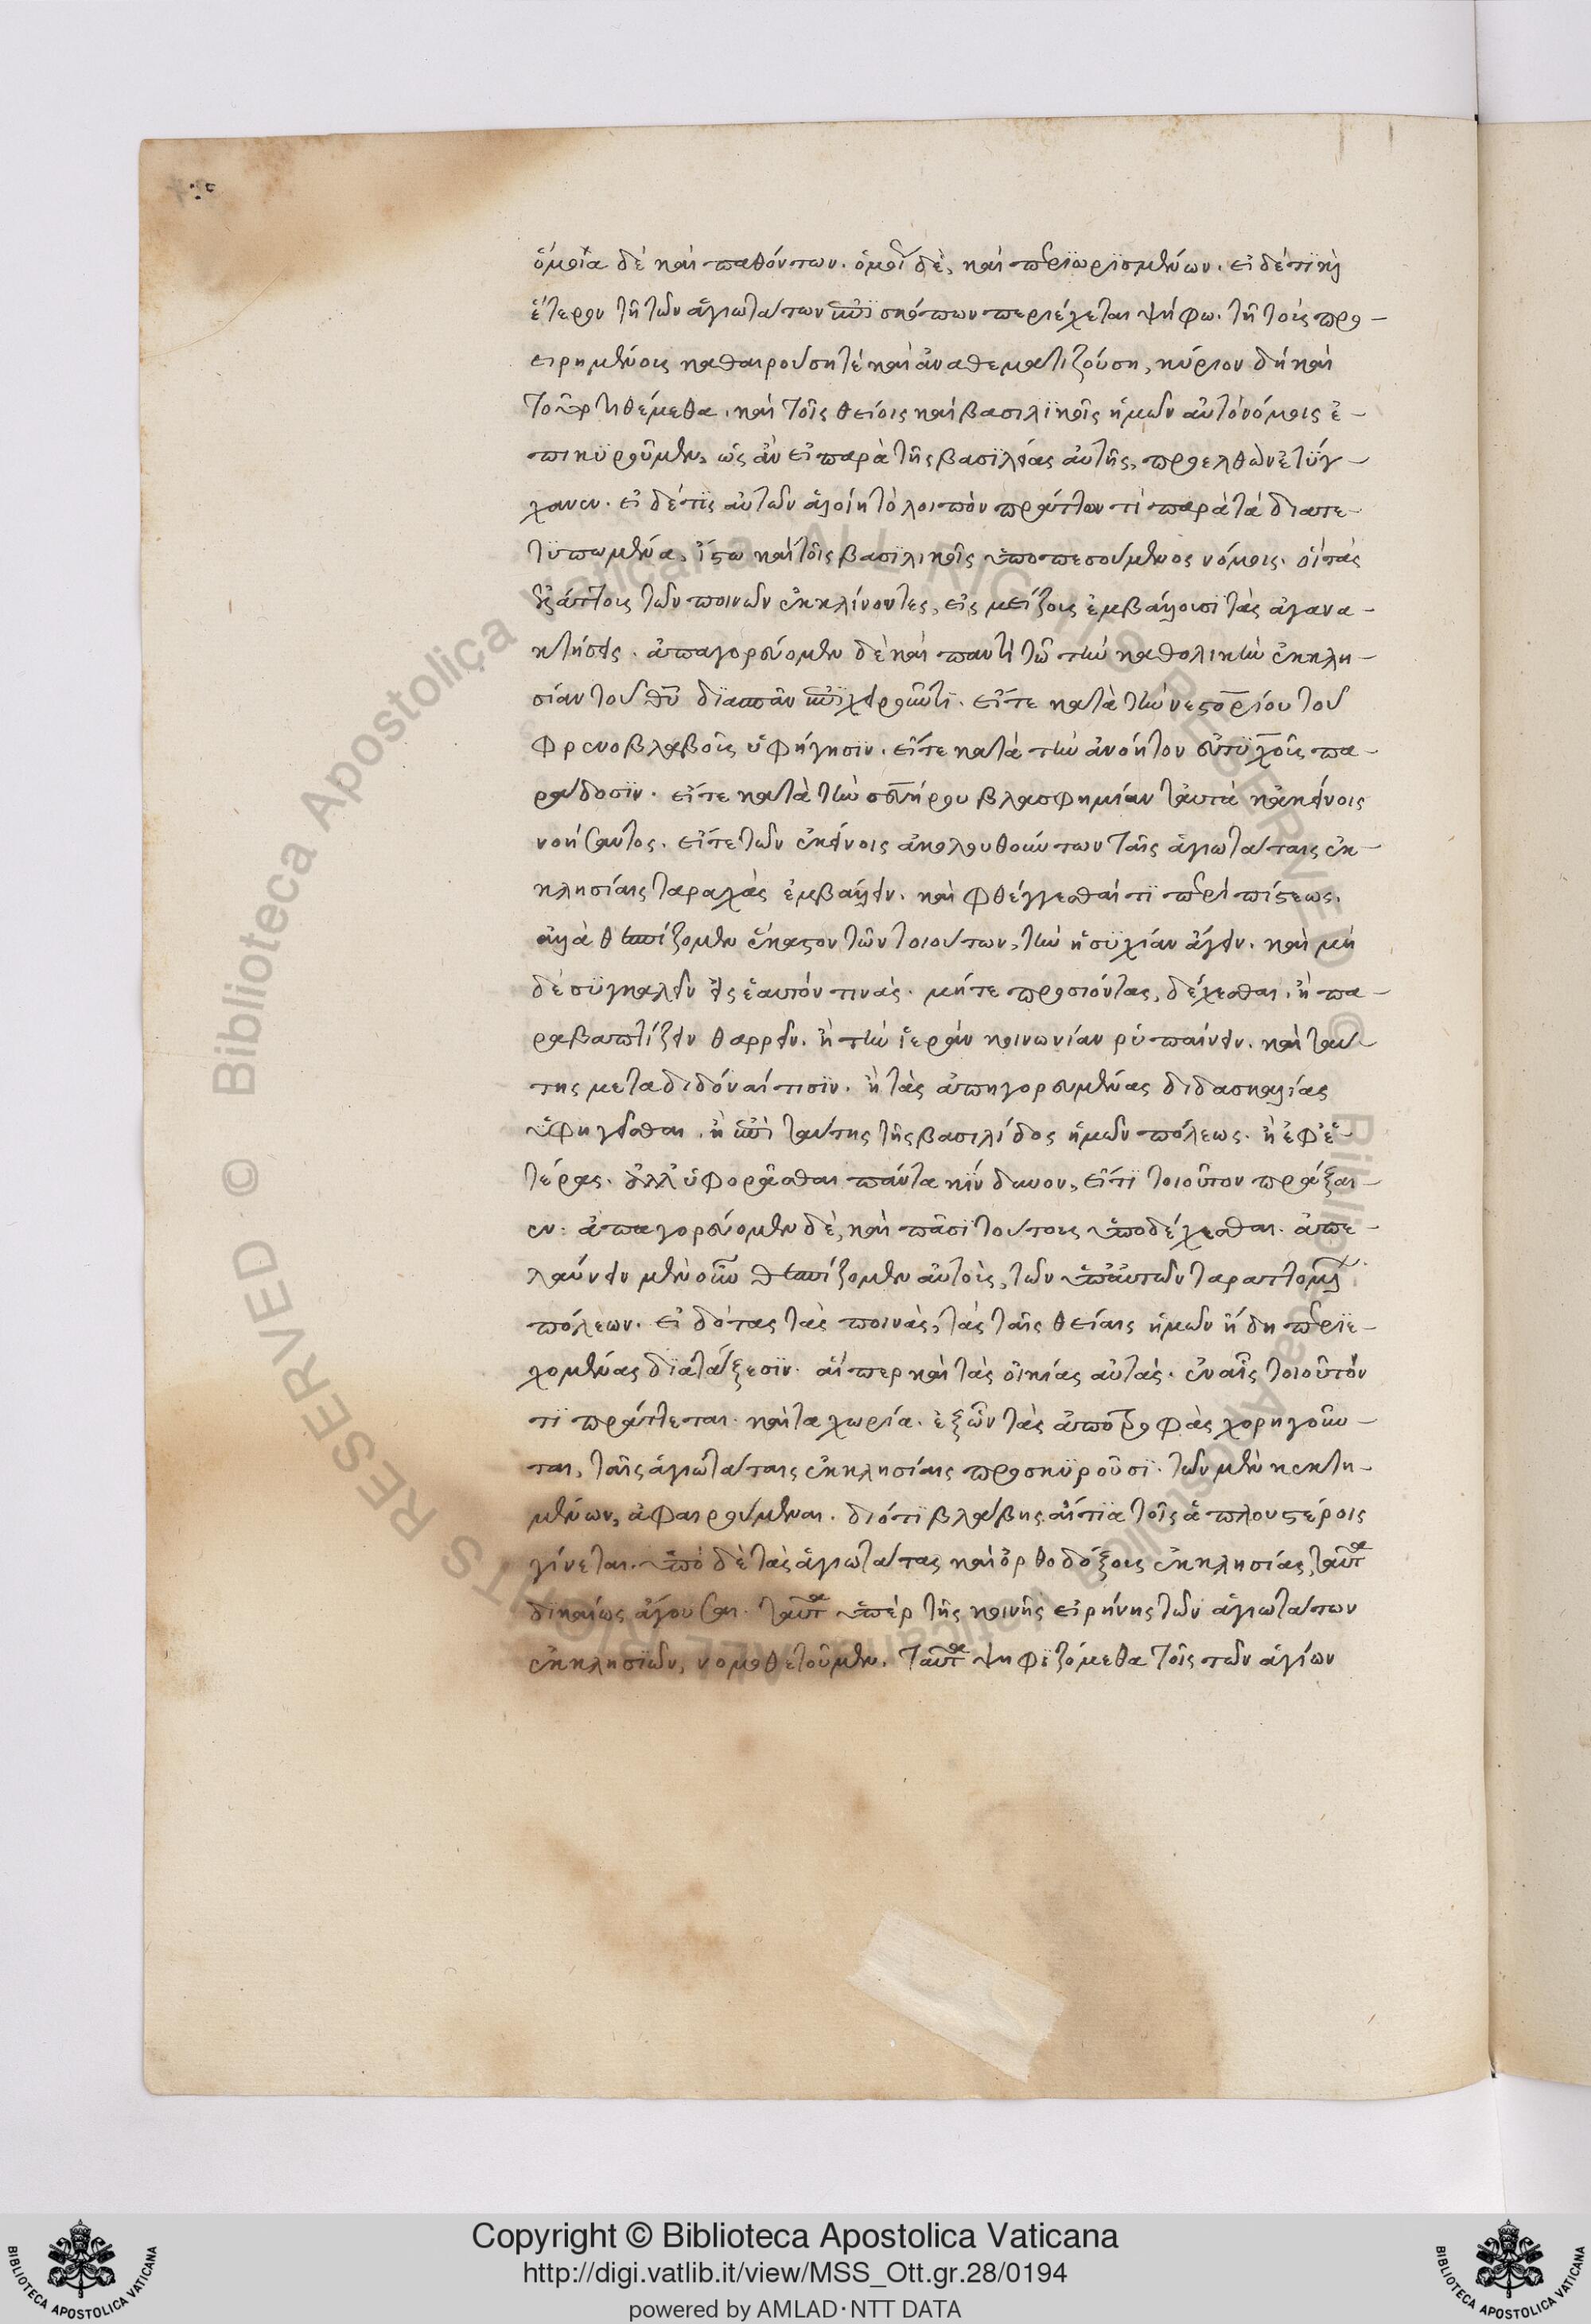 ὅμοια δὲ καὶ παθόντων. ὁμοῦ δὲ, καὶ περιωρϊσμένων. εἰ δέ τι καὶ
ἕτερον τῆ τῶν ἁγιωτάτων ἐπισκόπων περιέχεται ψήφω. τῆ τοὺς προ-
ειρημένους καθαιρούση τὲ καὶ ἀναθεματιζούση, κύριον δὴ καὶ
τοῦτο τιθέμεθα. καὶ τοῖς θείοις καὶ βασιλϊκοῖς ἡμῶν αὐτὸ νόμοις ἐ-
πικϋροῦμεν, ὡς ἂν εἰ παρὰ τῆς βασϊλείας αὐτῆς, προελθὼν ἐτύγ-
χανεν. εἰ δέ τις αὐτῶν ἁλοίη τὸ λοιπὸν πράττων τὶ παρὰ τὰ διατε-
τϋπωμένα, ἴστω καὶ τοῖς βασϊλικοῖς ὑποπεσούμενος νόμοις. οἱ τὰς
ἐλάττους τῶν ποινῶν ἐκκλίνοντες, εἰς μείζους ἐμβάλλουσϊ τὰς ἀγανα-
κτήσεις. ἀπαγορεύομεν δὲ καὶ παντὶ τῶ τὴν καθολικὴν ἐκκλη-
σίαν τοῦ θῦ διασπᾶν ἐπϊχειροῦντϊ. εἴτε κατὰ τὴν νεστορίου τοῦ
φρενοβλαβοῦς ὑφήγησϊν. εἴτε κατὰ τὴν ἀνόητον εὐτϋχοῦς πα-
ράδοσϊν. εἴτε κατὰ τὴν σευήρου βλασφημίαν ταὐτὰ κἀκείνοις
νοήσαντος. εἴτε τῶν ἐκείνοις ἀκολουθούντων ταῖς ἁγιωτάταις ἐκ-
κλησίαις ταραχὰς ἐμβάλλειν. καὶ φθέγγεσθαί τϊ περὶ πίστεως.
ἀλλὰ θεσπίζομεν ἕκαστον τῶν τοιούτων, τὴν ἡσϋχίαν ἄγειν. καὶ μὴ
δὲ σϋγκαλεῖν εἰς ἑαυτόν τινάς. μήτε προσιόντας, δέχεσθαι. ἢ πα-
ραβαπτίζειν θαρρεῖν. ἢ τὴν ἱερὰν κοινωνίαν ῥϋπαίνειν. καὶ ταύ-
της μεταδιδόναι τισϊν. ἢ τὰς ἀπηγορευμένας διδασκαλίας
ὑφηγεῖσθαι. ἢ ἐπὶ ταύτης τῆς βασιλίδος ἡμῶν πόλεως. ἢ ἐφ' ἑ-
τέρας. ἀλλ' ὑφορᾶσθαι πάντα κίνδυνον, εἴ τϊ τοιοῦτον πράξαι-
εν: ἀπαγορεύομεν δὲ, καὶ πᾶσϊ τούτους ὑποδέχεσθαι. ἀπε-
λαύνειν μὲν οὖν θεσπίζομεν αὐτοὺς, τῶν ὑπ' αὐτῶν ταραττομένων
πόλεων. εἰδότας τὰς ποινὰς, τὰς ταῖς θείαις ἡμῶν ἤδη περϊε-
χομένας διατάξεσϊν. αἵπερ καὶ τὰς οἰκίας αὐτάς. ἐν αἷς τοιοῦτόν
τϊ πράττεται. καὶ τὰ χωρία. ἐξ ὧν τὰς ἀποτροφὰς χορηγοῦν-
ται, ταῖς ἁγιωτάταις ἐκκλησίαις προσκϋροῦσϊ. τῶν μὲν κεκτη-
μένων, ἀφαιρούμεναι. διότϊ βλάβης αἴτϊα τοῖς ἁπλουστέροις
γίνεται. ὑπὸ δὲ τὰς ἁγιωτάτας καὶ ὀρθοδόξους ἐκκλησίας, ταῦτα
δικαίως ἄγουσαι. ταῦτα ὑπὲρ τῆς κοινῆς εἰρήνης τῶν ἁγιωτάτων
ἐκκλησϊῶν, νομοθετοῦμεν. ταῦτα ψηφϊζόμεθα τοῖς τῶν ἁγίων
Copyright © Biblioteca Apostolica Vaticana
http://digi.vatlib.it/view/MSS_Ott.gr.28/0194
powered by AMLAD·NTT DATA